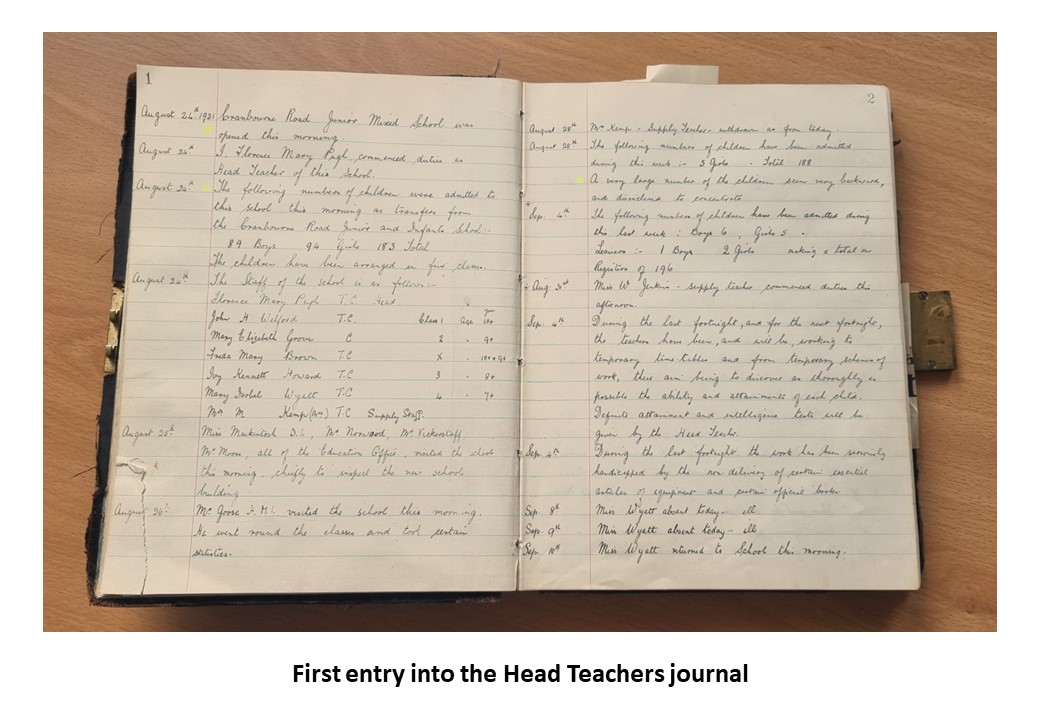 1
August 24th 1931 Cranbourne Road Junior Mixed School was
opened this morning.
August 24th I, Florence Mary Pugh, commenced duties as
Head Teacher of this School.
August 24th The following numbers of children were admitted to
this school this morning as transfers from
the Cranbourne Road Junior and Infants School:-
89 Boys 94 Girls 183 Total
The children have been arranged in four classes.
August 24th The Staff of the school is as follows:-
Florence Mary Pugh T.C. Head
John H Welford T.C. Class 1 Age 10+
Mary Elizabeth Grove C 2 " 9+
Freda Mary Brown T.C X "
Ivy Kenneth Howard T.C 3 " 8+
Mary Isobel Wyatt T.C 4 " 7+
Mrs M Kemp (Mrs) T.C Supply Staff.
August 25th Miss Mackintosh D.I., Mr Norwood, Mr Vickerstaff,
Mr Moon, all of the Education Office, visited the school
this morning, chiefly to inspect the new school
building
August 26th Mr Goose H.M.I. visited the school this morning.
He went round the classes and took certain
statistics.
2
August 28th Mrs Kemp - Supply Teacher - withdrawn as from today.
August 28th The following numbers of children have been admitted
during this week :- 5 Girls - Total 188
A very large number of the children seem very backward,
and disinclined to concentrate
Sep. 4th The following numbers of children have been admitted during
this last week : Boys 6, Girls 5 -
Leavers :- 1 Boys 2 Girls making a total on
Registers of 196
Aug. 31st Miss W. Jenkins - supply teacher commenced duties this
afternoon.
Sep. 4th During the last fortnight, and for the next fortnight,
the teachers have been, and will be, working to
temporary time-tables and from temporary schemes of
work, their aim being to discover as thoroughly as
possible the ability and attainments of each child.
Definite attainment and intelligence tests will be
given by the Head Teacher.
Sep. 4th During the last fortnight the work has been seriously
handicapped by the non delivery of certain essential
articles of equipment and certain official books.
Sep 8th Miss Wyatt absent today - ill
Sep. 9th Miss Wyatt absent today - ill.
Sep. 10th Miss Wyatt returned to School this morning.
First entry into the Head Teachers journal